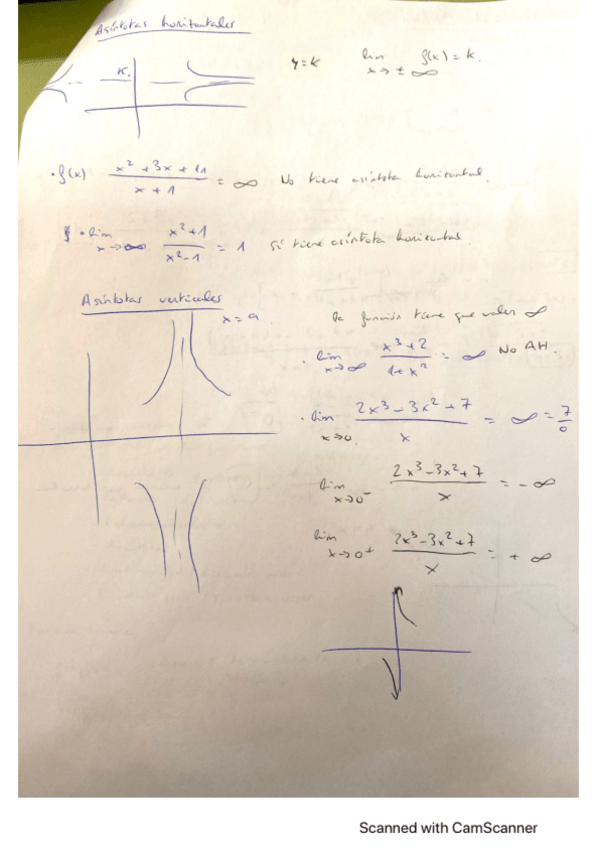 Asíntotas horizontales
K.
y=k lim x→±∞ f(x)=k.
· f(x) (x² + 3x + 11)/(x + 1) = ∞ No tiene asíntota horizontal.
· lim x→∞ (x²+1)/(x²-1) = 1 Sí tiene asíntota horizontal.
Asíntotas verticales
x=a
la función tiene que valer ∞
· lim x→∞ (x³+2)/(1+x²) = ∞ No AH.
· lim x→0 (2x³-3x²+7)/x = ∞ = 7/0
lim x→0⁻ (2x³-3x²+7)/x = -∞
lim x→0⁺ (2x³-3x²+7)/x = +∞
Scanned with CamScanner